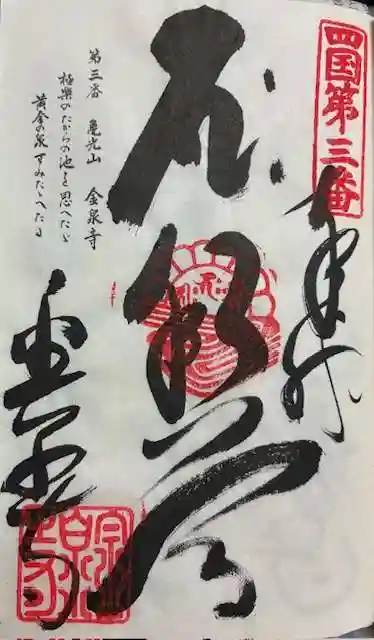 四国第三番
奉納
釈迦尊
第三番 亀光山 金泉寺
極楽のたからの池を思へたゞ
黄金の泉すみたゝへたる
金泉寺